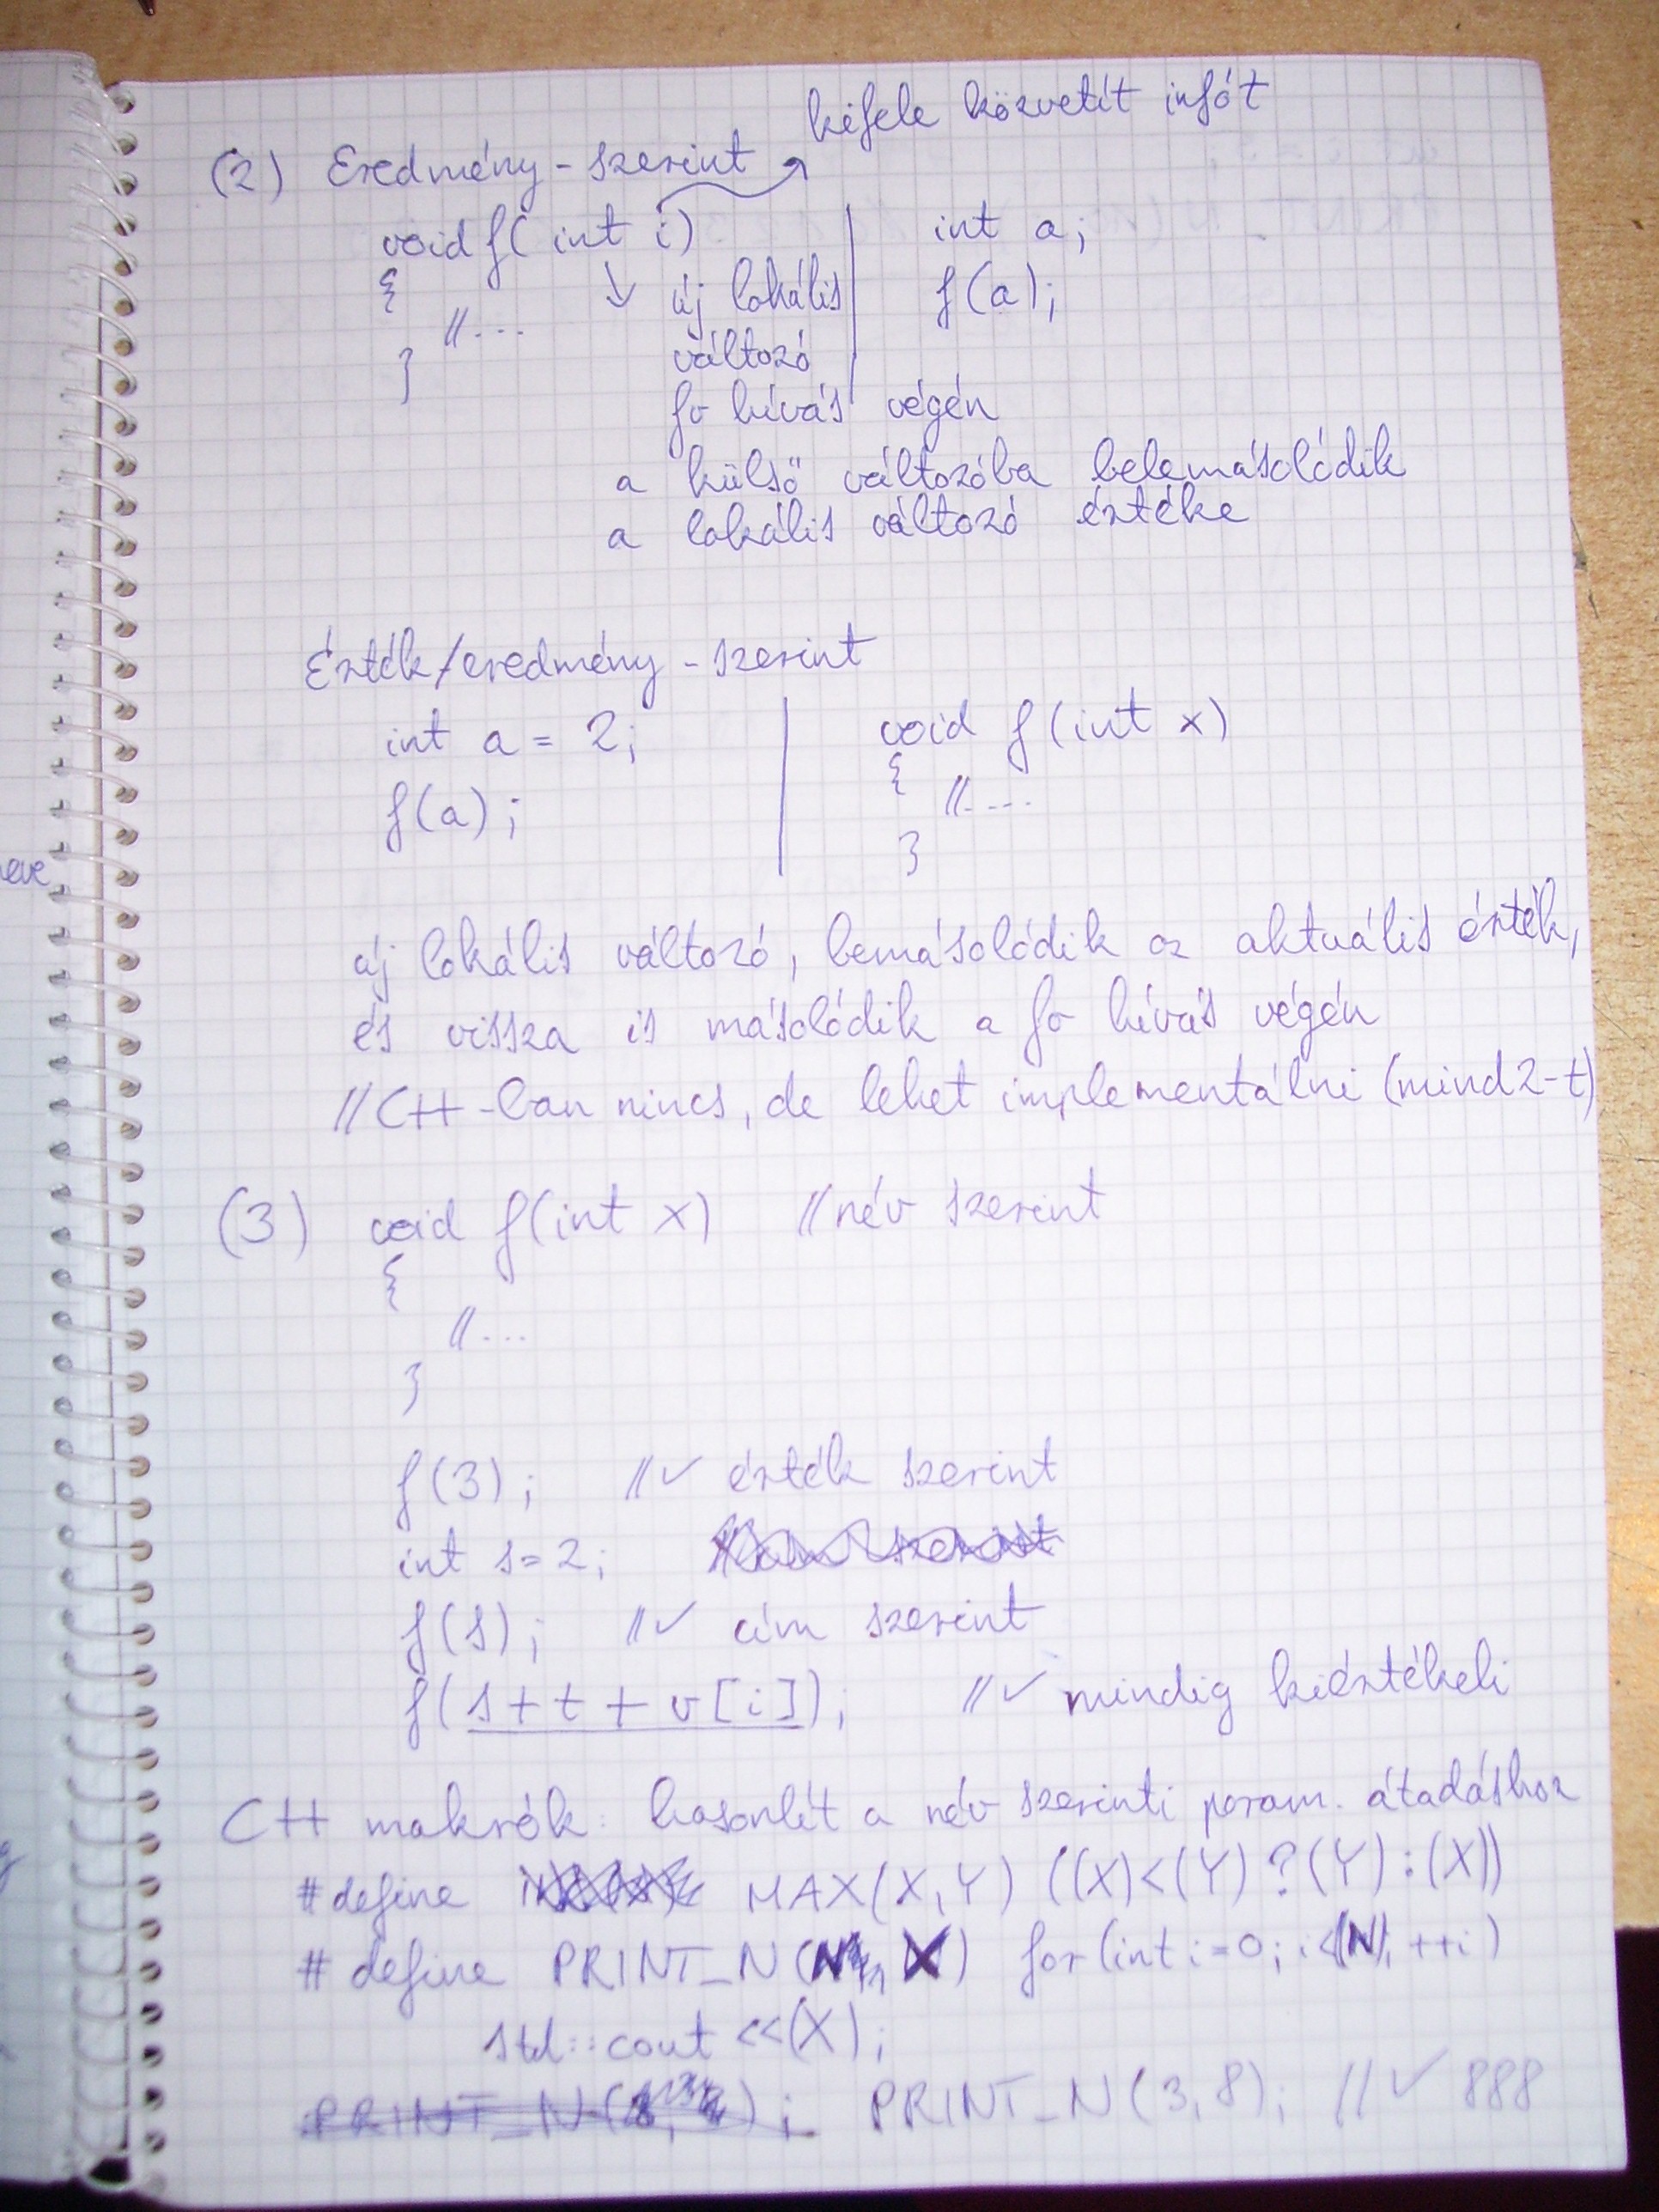 kifele közvetít infót
(2) Eredmény-szerint
void f( int i)
int a;
{
↓ új lokális
f(a);
//...
változó
}
fv hívás végén
a külső változóba belemásolódik
a lokális változó értéke
Érték/eredmény-szerint
int a = 2;
void f(int x)
{
f(a);
//....
}
eve
új lokális változó, bemásolódik az aktuális érték,
és vissza is másolódik a fv hívás végén
//C++-ban nincs, de lehet implementálni (mind2-t)
(3) void f(int x) //név szerint
{
//...
}
f(3); //✓ érték szerint
int s=2;
f(s); //✓ cím szerint
f(s+t+v[i]); //✓ mindig kiértékeli
C++ makrók: hasonlít a név szerinti param. átadáshoz
#define MAX(X,Y) ((X)<(Y)?(Y):(X))
#define PRINT_N(N, X) for(int i=0; i<(N); ++i)
std::cout <<(X);
PRINT_N(3,8); //✓ 888